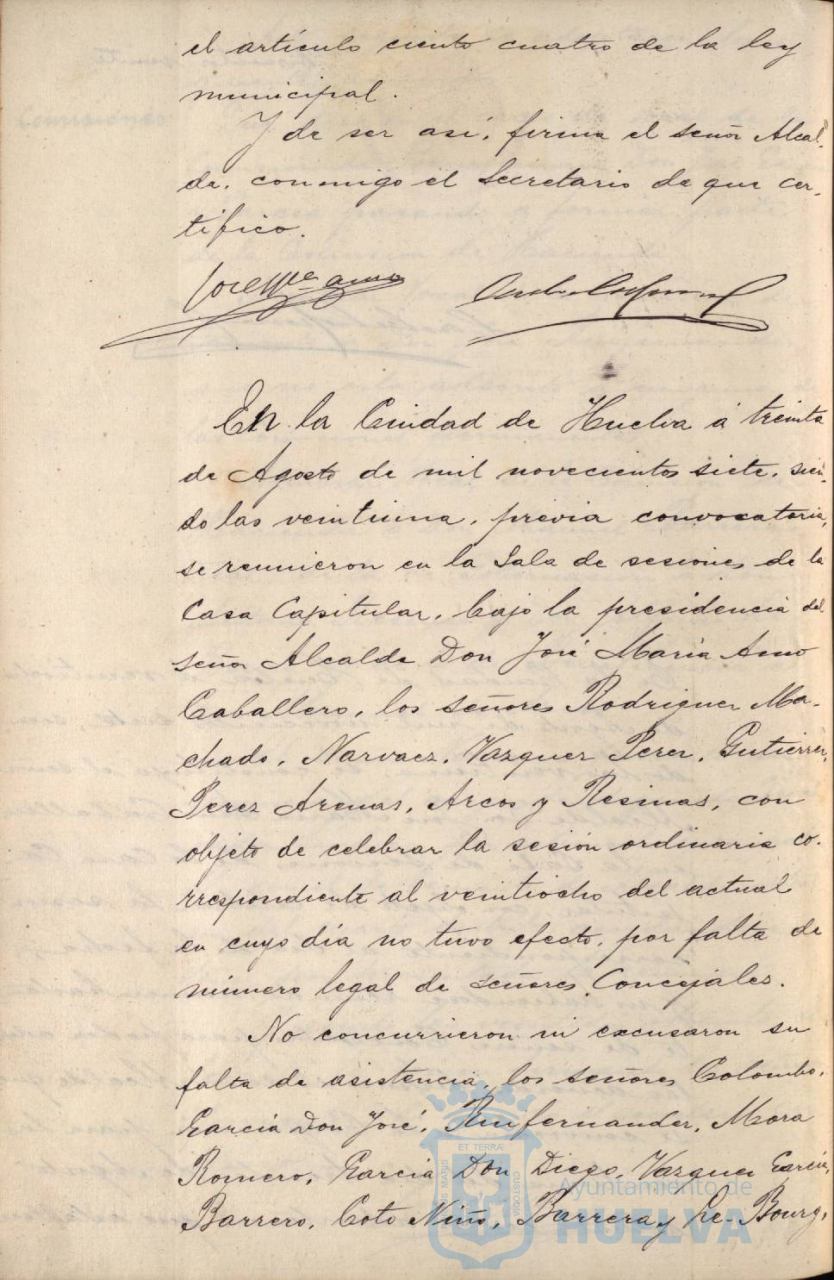 el artículo ciento cuatro de la ley
municipal.
Y de ser así, firma el señor Alcal-
de, conmigo el Secretario de que cer-
tifico.
En la Ciudad de Huelva á treinta
de Agosto de mil novecientos siete, sien-
do las veintiuna, previa convocatoria,
se reunieron en la Sala de sesiones de la
Casa Capitular, bajo la presidencia del
señor Alcalde Don José María Amo
Caballero, los señores Rodriguez Ma-
chado, Narvaez, Vazquez Perez, Gutierrez,
Perez Arenas, Arcos y Resinas, con
objeto de celebrar la sesión ordinaria co-
rrespondiente al veintiocho del actual
en cuyo día no tuvo efecto, por falta de
número legal de señores Concejales.
No concurrieron ni excusaron su
falta de asistencia, los señores Colombo,
García Don José, Ruifernandez, Mora
Romero, García Don Diego, Vazquez García,
Barrero, Coto Niño, Barrera y Le-Bourg,
ET TERRA
Ayuntamiento de
HUELVA